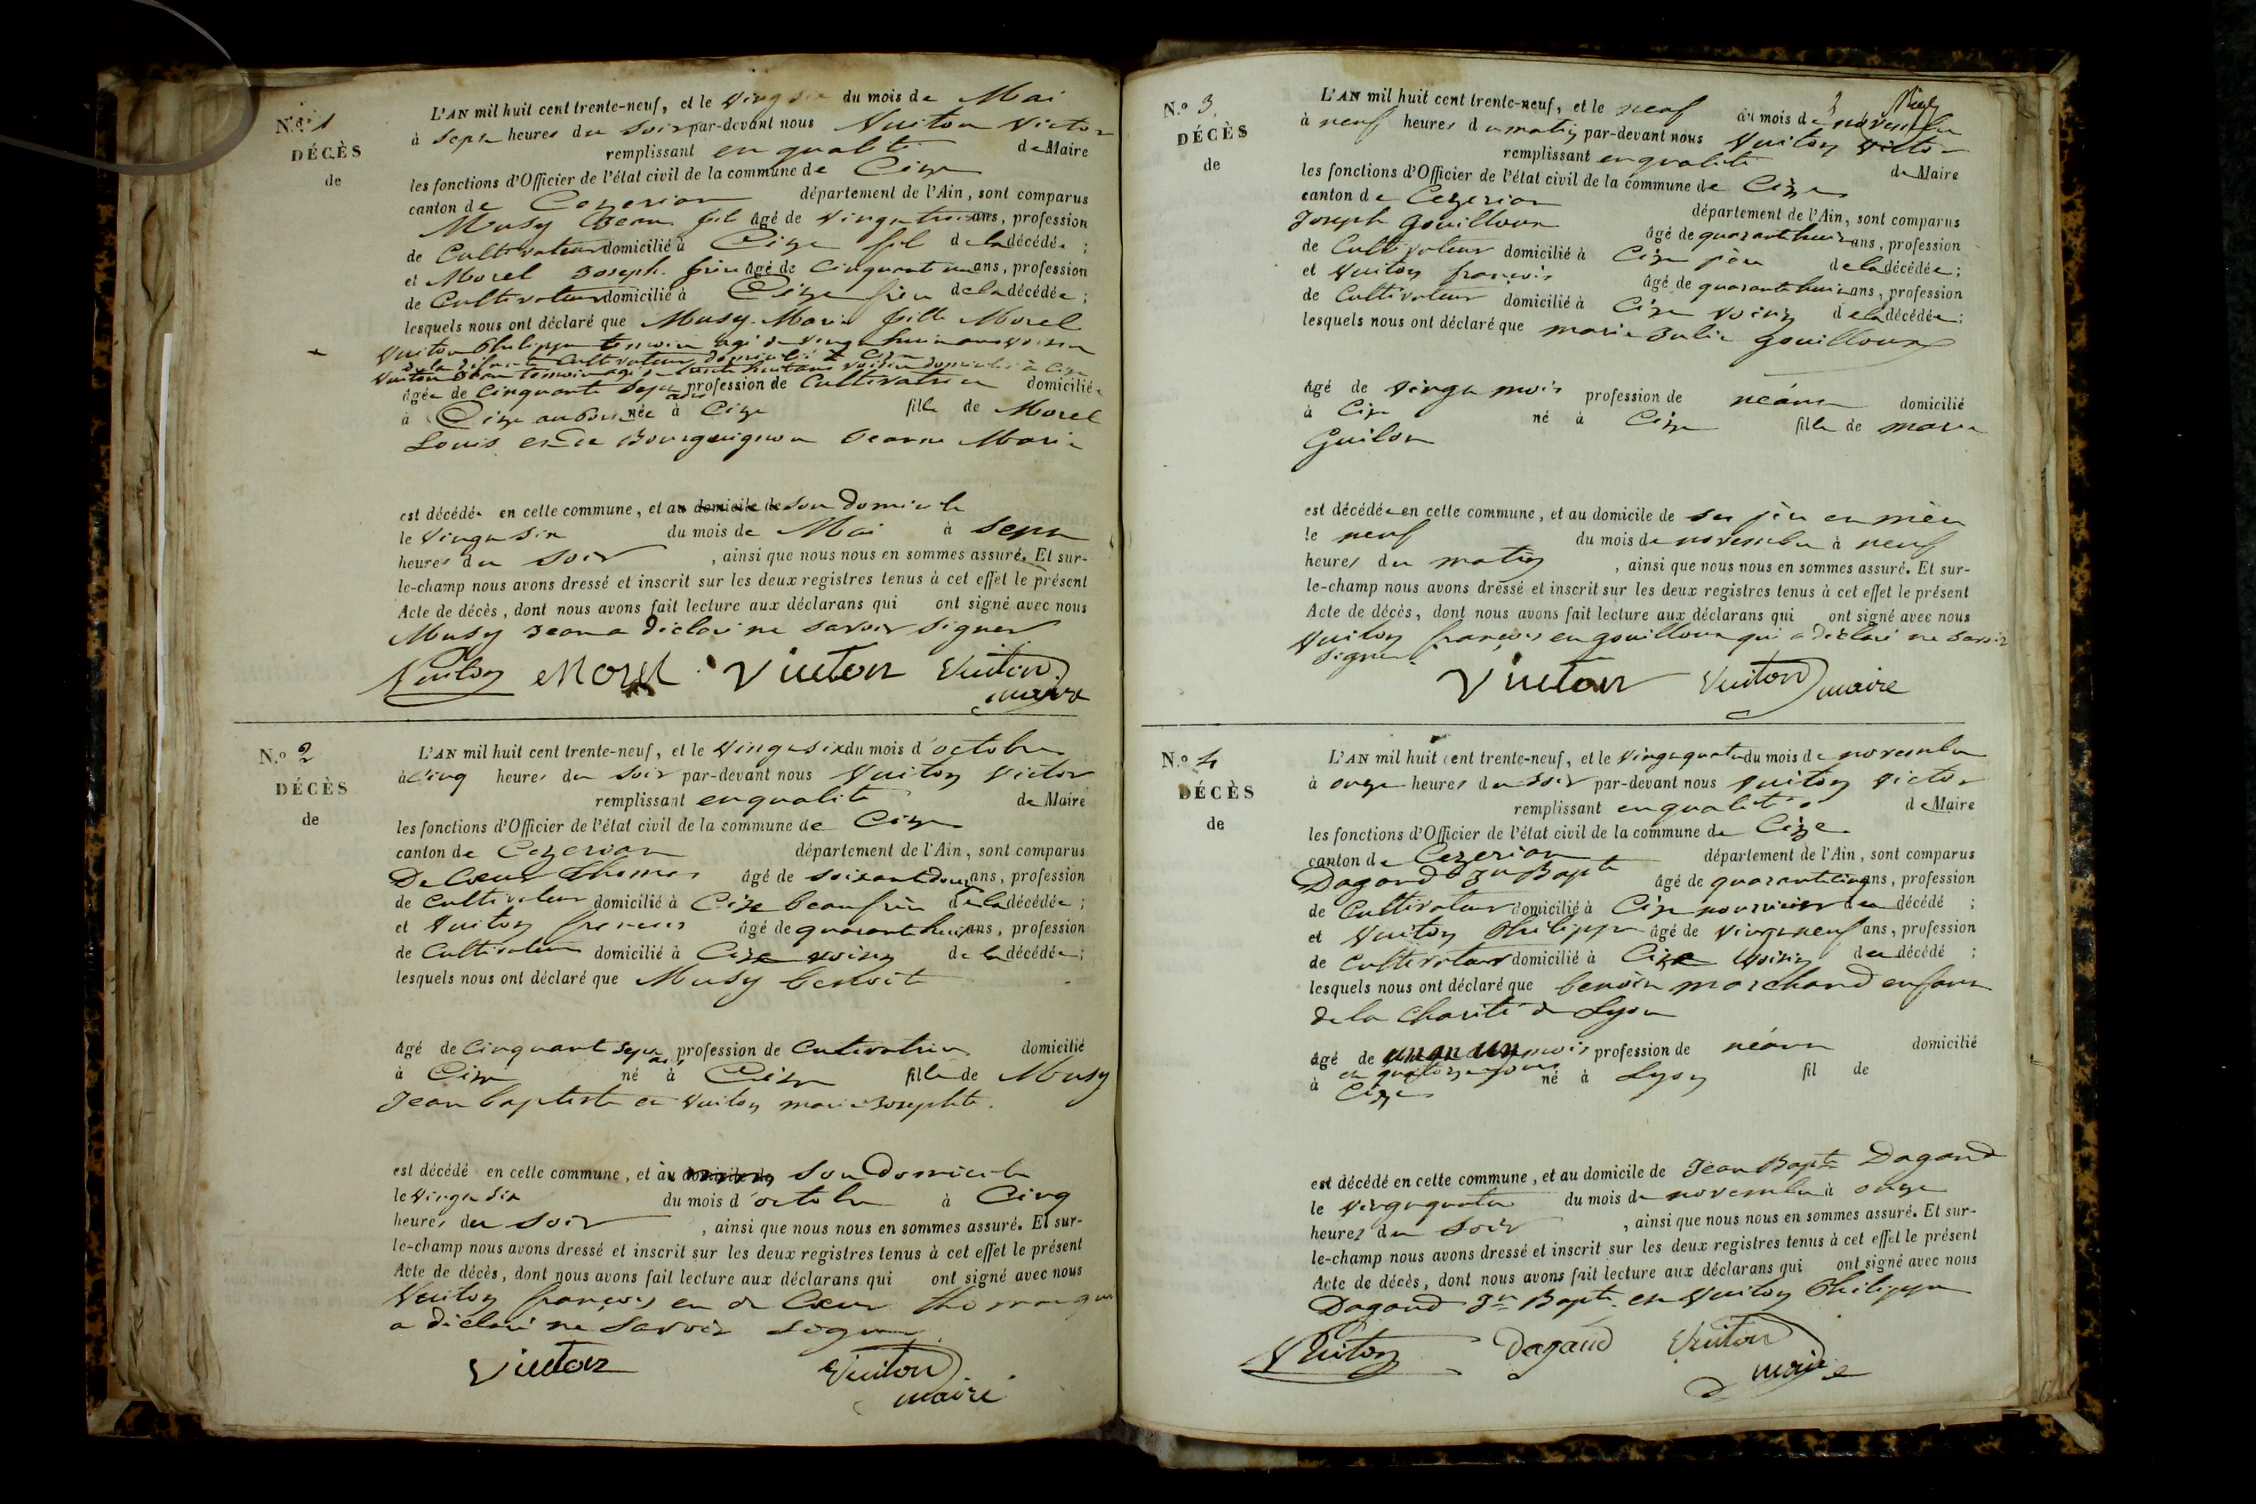 N.º 1
DÉCÈS
de
L'AN mil huit cent trente-neuf, et le vingt six du mois de Mai
à sept heures du soir par-devant nous Vuiton Victor
remplissant en qualité de Maire
les fonctions d'Officier de l'état civil de la commune de Cize
canton de Cezerian département de l'Ain, sont comparus
Musy Jean fil âgé de vingt trois ans, profession
de Cultivateur domicilié à Cize fil de la décédée ;
et Morel Joseph frère âgé de Cinquant un ans, profession
de Cultivateur domicilié à Cize frère de la décédée ;
lesquels nous ont déclaré que Musy Marie fille Morel
Vuiton Philippe temoin agé de vingt huit ans voisin
de la défunte Cultivateur domicilié à Cize
Vuiton Jean temoin agé de huit ans voisin domicilié à Cize
âgée de Cinquante sept ans profession de Cultivatrice domiciliée
à Cize née à Cize fille de Morel
Louis et de Bourguignon Jeanne Marie
est décédée en cette commune, et au domicile de son domicile
le vingt six du mois de Mai à sept
heures du soir, ainsi que nous nous en sommes assuré. Et sur-
le-champ nous avons dressé et inscrit sur les deux registres tenus à cet effet le présent
Acte de décès, dont nous avons fait lecture aux déclarans qui ont signé avec nous
Musy Jean a déclaré ne savoir signer
Vuiton Morel Vuiton Vuiton
maire
N.º 2
DÉCÈS
de
L'AN mil huit cent trente-neuf, et le vingt six du mois d'octobre
à cinq heures du soir par-devant nous Vuiton Victor
remplissant en qualité de Maire
les fonctions d'Officier de l'état civil de la commune de Cize
canton de Cezerian département de l'Ain, sont comparus
De Cœur Thomas âgé de soixant douze ans, profession
de Cultivateur domicilié à Cize beau frère de la décédée ;
et Vuiton francois âgé de quarant huit ans, profession
de Cultivateur domicilié à Cize voisin de la décédée ;
lesquels nous ont déclaré que Musy benoite
âgé de Cinquant sept ans profession de Cultivatrice domicilié
à Cize né à Cize fille de Musy
Jean baptiste et Vuiton marie Josephte.
est décédé en cette commune, et au domicile de son Domicile
le vingt six du mois d'octobre à Cinq
heures du soir, ainsi que nous nous en sommes assuré. Et sur-
le-champ nous avons dressé et inscrit sur les deux registres tenus à cet effet le présent
Acte de décès, dont nous avons fait lecture aux déclarans qui ont signé avec nous
Vuiton françois et de Cœur thomas qui
a déclaré ne savoir signer.
Vuiton Vuiton
maire
N.º 3
DÉCÈS
de
L'AN mil huit cent trente-neuf, et le neuf du mois de novembre
à neuf heures du matin par-devant nous Vuiton Victor
remplissant en qualité de Maire
les fonctions d'Officier de l'état civil de la commune de Cize
canton de Cezerian département de l'Ain, sont comparus
Joseph Gouilloux âgé de quarant huit ans, profession
de Cultivateur domicilié à Cize père de la décédée ;
et Vuiton françois âgé de quarante huit ans, profession
de Cultivateur domicilié à Cize voisin de la décédée ;
lesquels nous ont déclaré que marie Julie Gouilloux
âgé de vingt mois profession de néant domicilié
à Cize né à Cize fille de marie
Guilon
est décédée en cette commune, et au domicile de ses père et mère
le neuf du mois de novembre à neuf
heures du matin, ainsi que nous nous en sommes assuré. Et sur-
le-champ nous avons dressé et inscrit sur les deux registres tenus à cet effet le présent
Acte de décès, dont nous avons fait lecture aux déclarans qui ont signé avec nous
Vuiton françois et gouilloux qui a déclaré ne savoir
signer.
Vuiton Vuiton maire
N.º 4
DÉCÈS
de
L'AN mil huit cent trente-neuf, et le vingt quatre du mois de novembre
à onze heures du soir par-devant nous Vuiton Victor
remplissant en qualité de Maire
les fonctions d'Officier de l'état civil de la commune de Cize
canton de Cezerian département de l'Ain, sont comparus
Dagand Jn Bapte âgé de quarant cinq ans, profession
de Cultivateur domicilié à Cize nourricier du décédé ;
et Vuiton Philippe âgé de vingt neuf ans, profession
de Cultivateur domicilié à Cize voisin du décédé ;
lesquels nous ont déclaré que benoit marchand enfant
de la Charité de Lyon
âgé de un mois profession de néant domicilié
et quatorze jours
à Cize né à Lyon fil de
est décédé en cette commune, et au domicile de Jean Bapte Dagand
le vingt quatre du mois de novembre à onze
heures du soir, ainsi que nous nous en sommes assuré. Et sur-
le-champ nous avons dressé et inscrit sur les deux registres tenus à cet effet le présent
Acte de décès, dont nous avons fait lecture aux déclarans qui ont signé avec nous
Dagand Jn Bapte et Vuiton Philippe
Vuiton Dagand Vuiton
maire